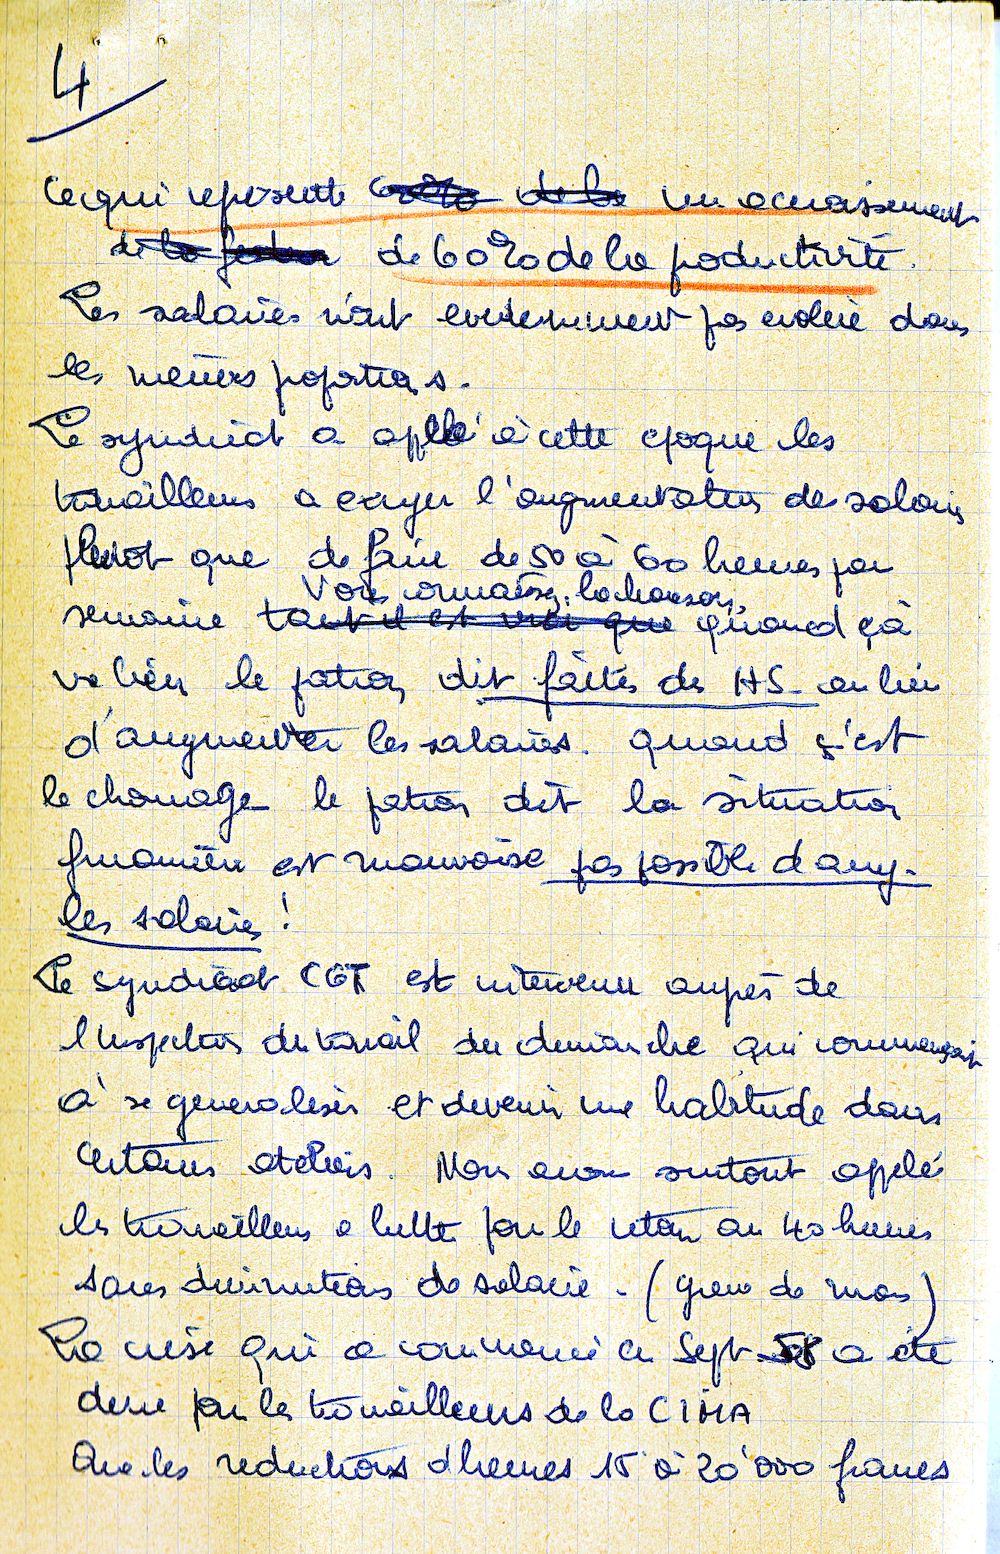 4
Ce qui represente 60% de la un accroissement
de la de 60% de la productivité.
Les salaires n'ont evidemment pas evolué dans
les memes proportions.
Le syndicat a appelé à cette epoque les
travailleurs a exiger l'augmentation des salaires
plutot que de faire de 50 à 60 heures par
Vous connaissez la chanson,
semaine tant il est vrai que quand çà
va bien le patron dit faites des HS au lieu
d'augmenter les salaires. Quand ç'est
le chomage le patron dit la situation
financière est mauvaise pas possible d'aug.
les salaires !
Le syndicat CGT est intervenu aupès de
l'inspection du travail du dimanche qui commençait
à se generaliser et devenir une habitude dans
certains ateliers. Nous avons surtout appelé
les travailleurs a lutter pour le retour au 40 heures
sans diminution de salaire. (greve de mars)
La crise qui a commencé en Sept 58 a été
dure pour les travailleurs de la CIMA
Avec les reductions d'heures 15 à 20'000 francs